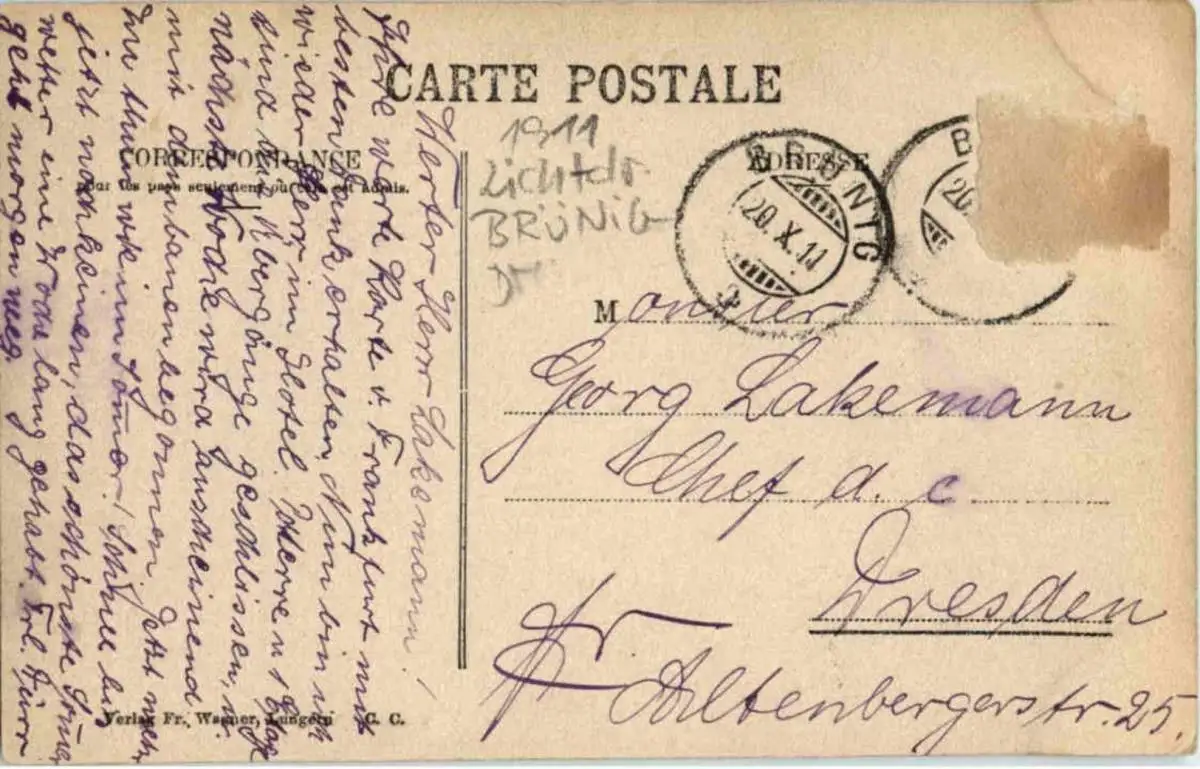 CARTE POSTALE
CORRESPONDANCE
pour les pays seulement ou cela est admis.
ADRESSE
1911
Lichtdr.
BRÜNIG
BRÜNIG
20.X.11
B
20.
Monsieur
Georg Lakemann
Chef d. c
Dresden
Altenbergerstr. 25.
Werter Herr Lakemann!
Ihre werte Karte v. Frankfurt mit
bestem Dank erhalten. Nun bin ich
wieder Herr im Hotel. Herren
sind wie übergänge geschlissen, u.
nächste Woche wird anscheinend
mit dem bauen begonnen. Jetzt mehr
zu thun wie im Sommer! Schnee
jetzt noch keinen, das schönste
wetter eine Woche lang gehabt. Frl. Dürr
geht morgen weg
Verlag Fr. Wagner, Lungern C. C.